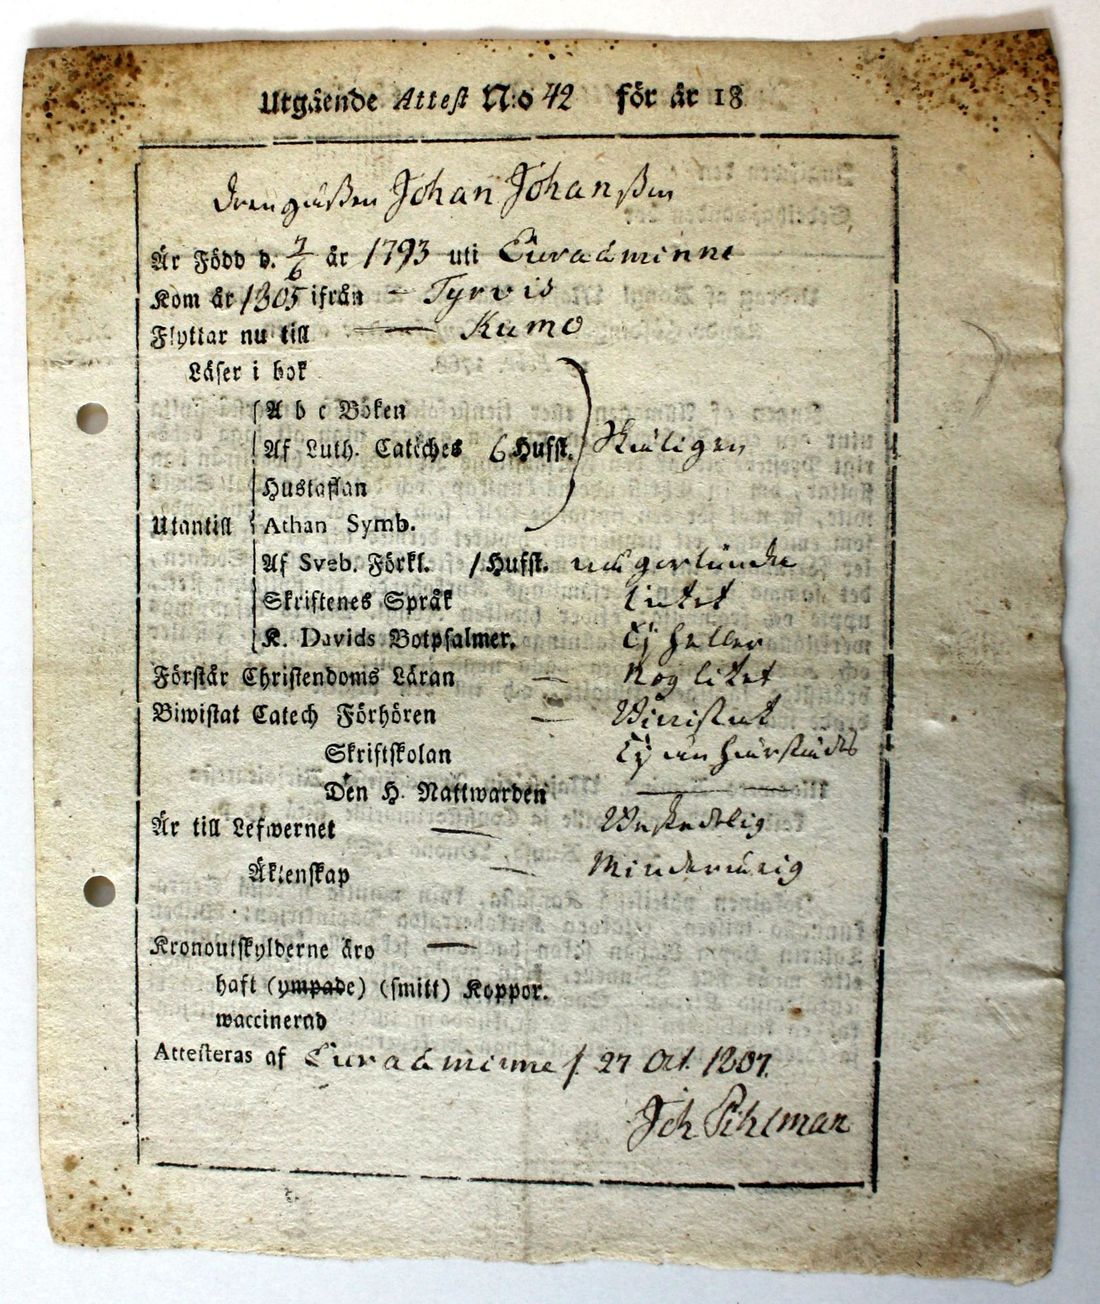 Utgående Attest N:o 42 för år 18
Drengåssen Johan Johansson
Är Född d. 7/6 år 1793 uti Euraåminne
Kom år 1805 ifrån - Tyrvis
Flyttar nu till — Kumo
Läser i bok
A b c Boken
Af Luth. Catéches 6 Hufst. Skäligen
Hustaflan
Utantill Athan Symb.
Af Sveb. Förkl. 1 Hufst. någorlunda
Skriftenes Språk Intet
K. Davids Botpsalmer. Ej heller
Förstår Christendoms Läran — Nog litet
Biwistat Catech Förhören — Biwistat
Skriftskolan Ej än
Den H. Nattwarden —
Är till Lefwernet — Oskadelig
Äktenskap — Minderårig
Kronoutskylderne äro —
haft (ympade) (smitt) Koppor.
waccinerad
Attesteras af Euraåminne d. 27 Oct. 1807.
Joh Pihlman